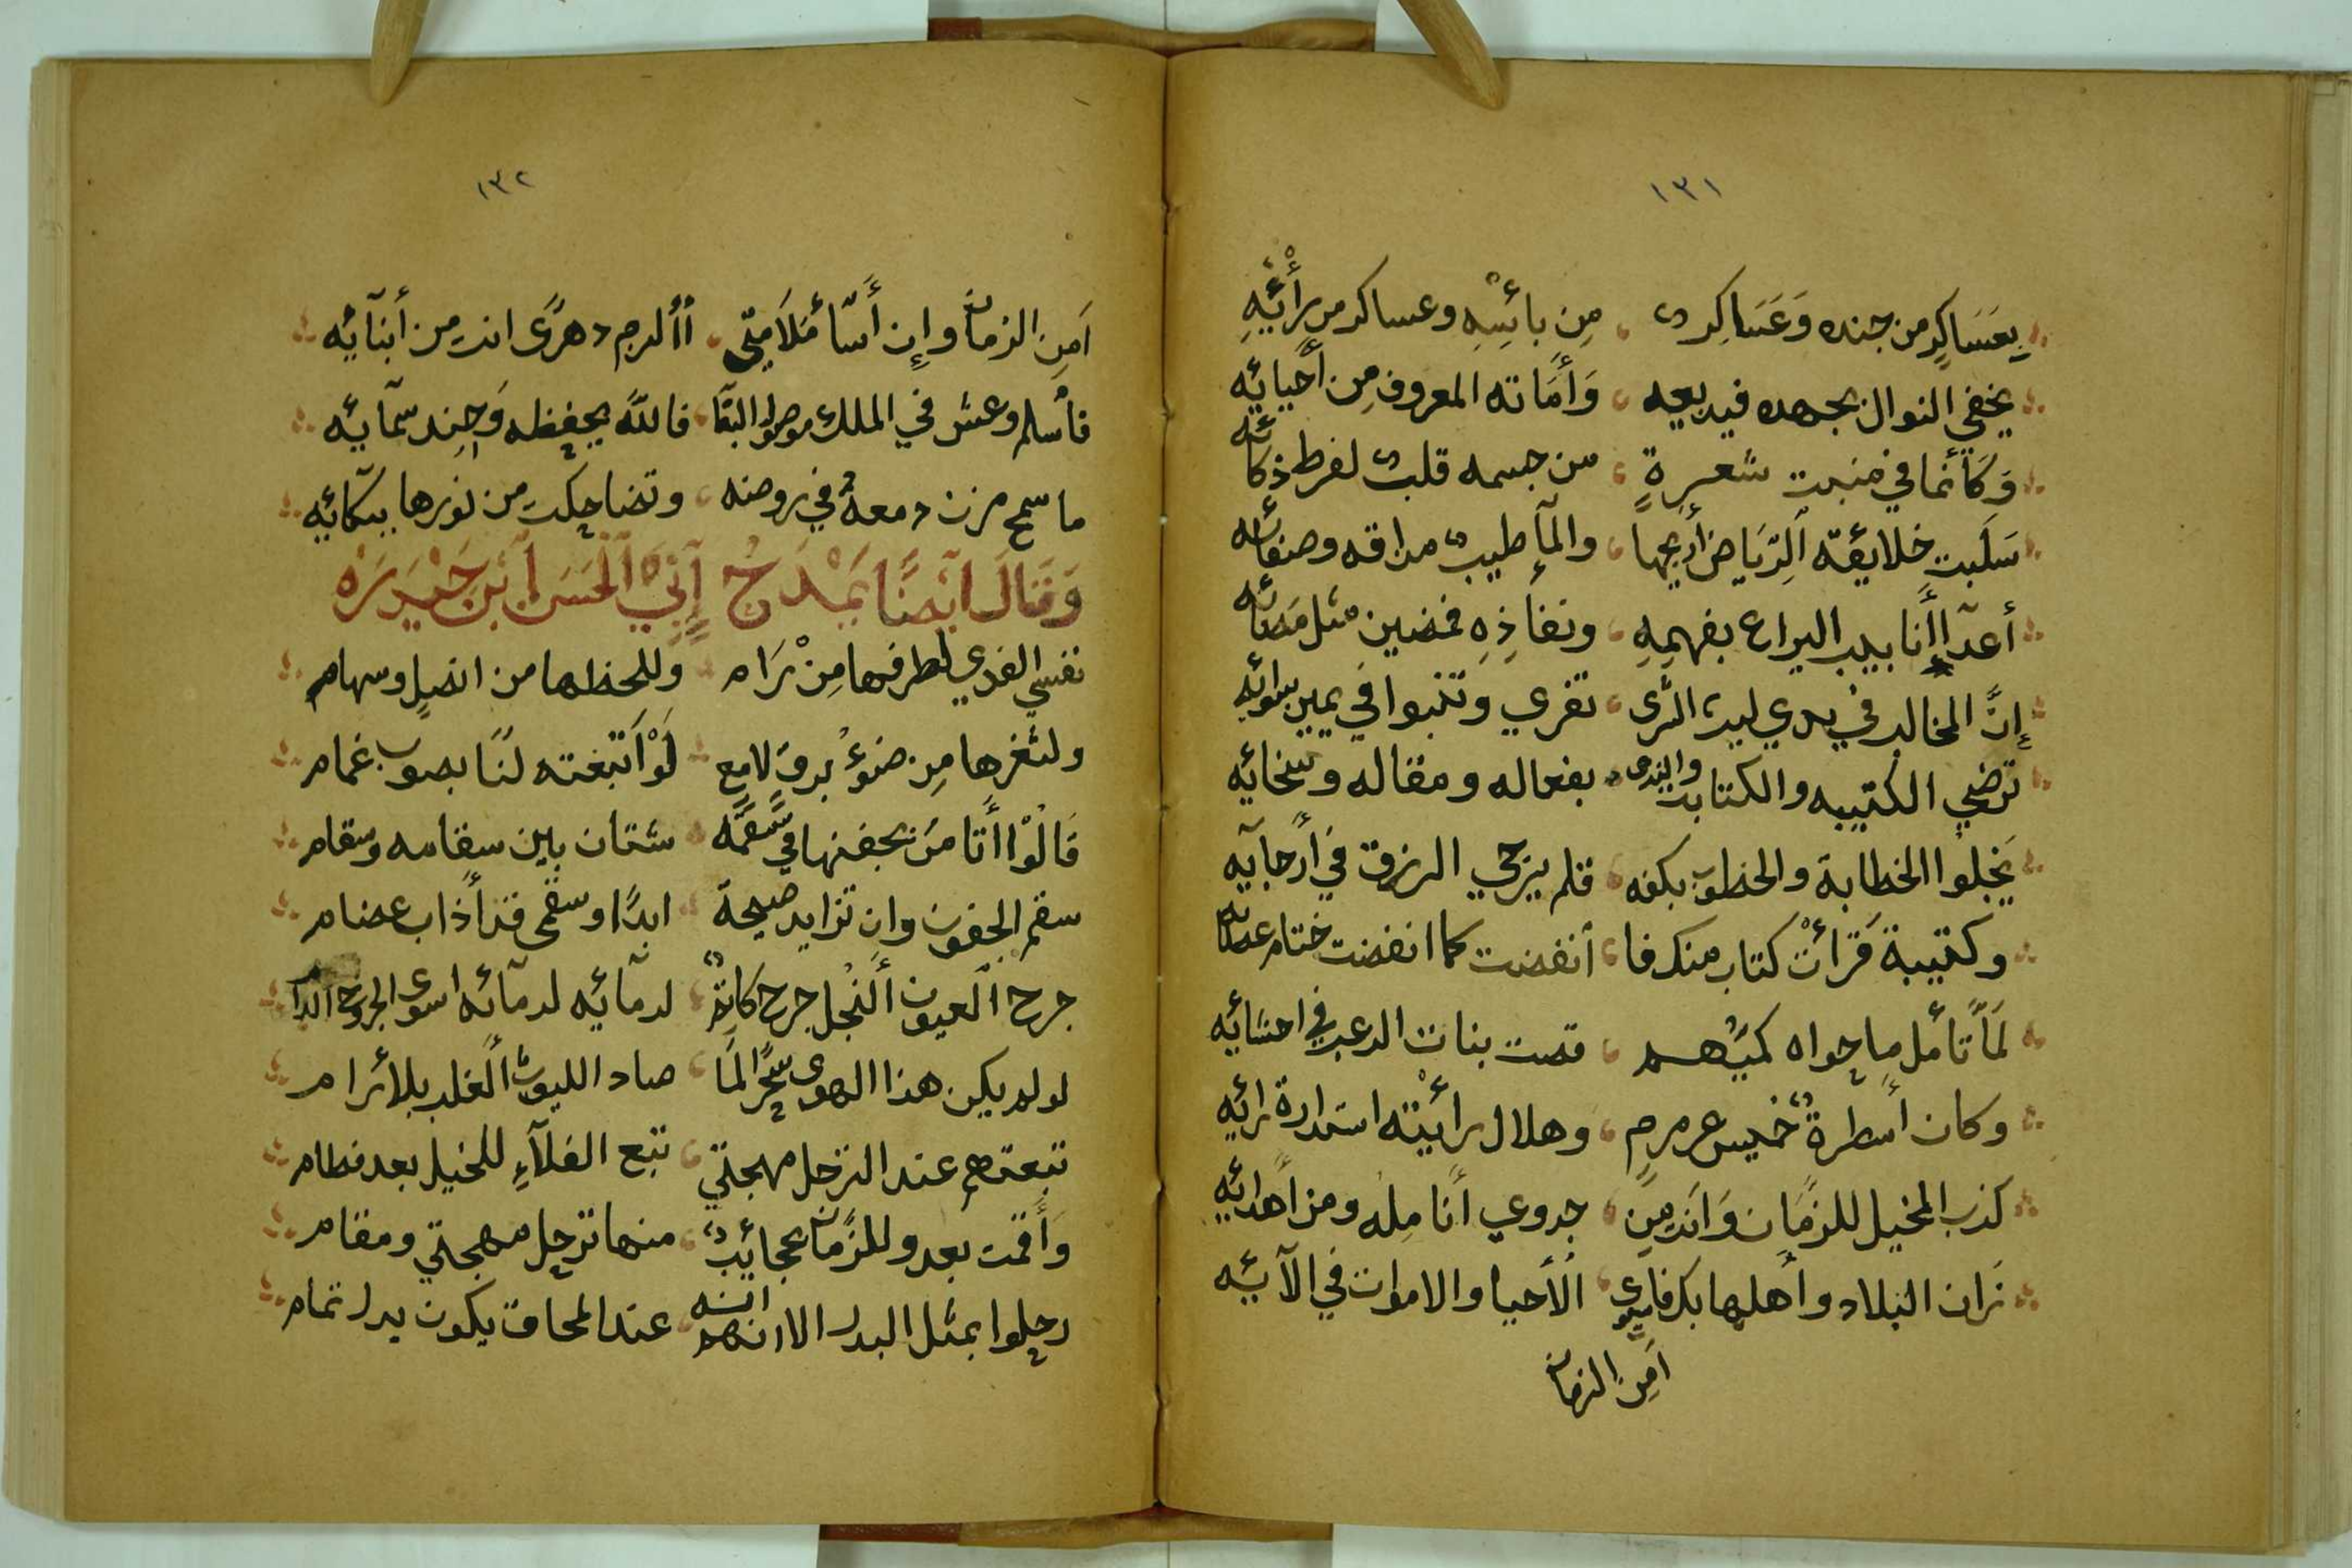 ١٣١
بِعَسَاكِرٍ من جنده وَعَسَاكِر من بائسِه وعساكر من رأئِهِ
يخفي النوال بجهده فيديعه وَأَمَاته المعروف مِن أحيائِه
وَكَأنما في منبت شعرةٍ من جسمه قلب لفرط ذكائه
سَلَبت خلايقه الرِّيَاض أريجها والمآ طيب مذاقه وصفائه
أعدآ أنابيب اليراع بفهمِهِ ونفاذِهِ فمضين مثل مضائه
إنَّ المخالب في يدي ليث الشرى تفري وتنبوا في يمين سوائِه
ترضي الكتيبه والكتابت والندى بفعاله ومقاله وسخائِه
يَجْلوا الخطابة والخطوب بكفه قلم يزجي الرزق في أرجآيه
وكتيبة قَرَأتْ كتاب منك فا أنفضت كما انفضت ختام
لَمَّا تأمل ما حواه كميُّهم قصت بنات الرعب في احشائِه
وكان أسطرهُ خميس عرمرم وهلال رأيته استدارة رائِه
كذب المخيل للزمَان وَانه مِن جدوي أنامِلُه ومن أهدائِه
زان البلاد وأهلها بك فاستوى الأحيا والاموات في الآئِه
اَمِن الزمان
١٣٢
اَمِن الزمان وإن أسَا مَلَامتي أألم دهرًى انت مِن أبنآئِه
فأسلم وعش في الملك موصول البقا فاللهَ يحفظه وَجند سمآيِه
ما سمح مزن دمعهُ في روضه وتضاحكت من نورها ببكآئِه
وَقَالَ ايْضًا يَمْدَحُ أَبِي الْحَسَن ابْن حَيْدَرَه
نفسي الفدي لطرفها مِنْ رَام وللحظها من انصلٍ وسهام
ولثغرها مِن ضوْءُ برق لامع لَوْ اَتبعَته لنَا بصوب غمام
قَالُوْا أتامَن بجفنها في سقمه شتان بين سقامه وسقام
سقم الجفون وان تزايد صحة ابدًا وسقمى قد أذاب عضام
جرح العيون النُجل جرح كاتم لدمآئِه لدمآئه اسوى الجروح
لو لم يكن هذا الهوى سحرًا لمَا صاد الليوث الغلب بالأرام
تبعتهم عند الترحل مهجتي تبع الفلآءِ للخيل بعد فطام
وَأَقمت بعد وللزمَان عجائب منها ترحل مهجتي ومقام
رحلوا بمثل البدر الا انه انهم عند المحاق يكون بدر تمام